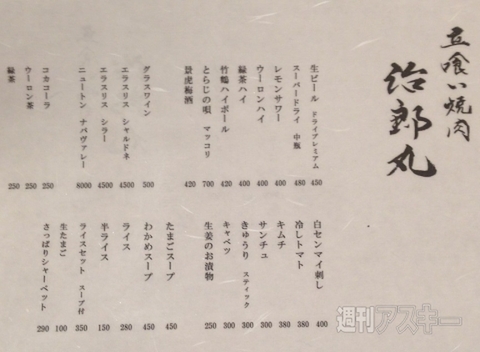 立喰い焼肉
治郎丸
生ビール ドライプレミアム 450
スーパードライ 中瓶 480
レモンサワー 400
ウーロンハイ 400
緑茶ハイ 400
竹鶴ハイボール 420
とらじの唄 マッコリ 700
景虎梅酒 420
グラスワイン 500
エラスリス シャルドネ 4500
エラスリス シラー 4500
ニュートン ナパヴァレー 8000
コカコーラ 250
ウーロン茶 250
緑茶 250
白センマイ刺し 400
冷しトマト 380
キムチ 380
サンチュ 300
きゅうり スティック 300
キャベツ 300
生姜のお漬物 250
たまごスープ 450
わかめスープ 450
ライス 280
半ライス 150
ライスセット スープ付 350
生たまご 100
さっぱりシャーベット 290
週刊アスキー